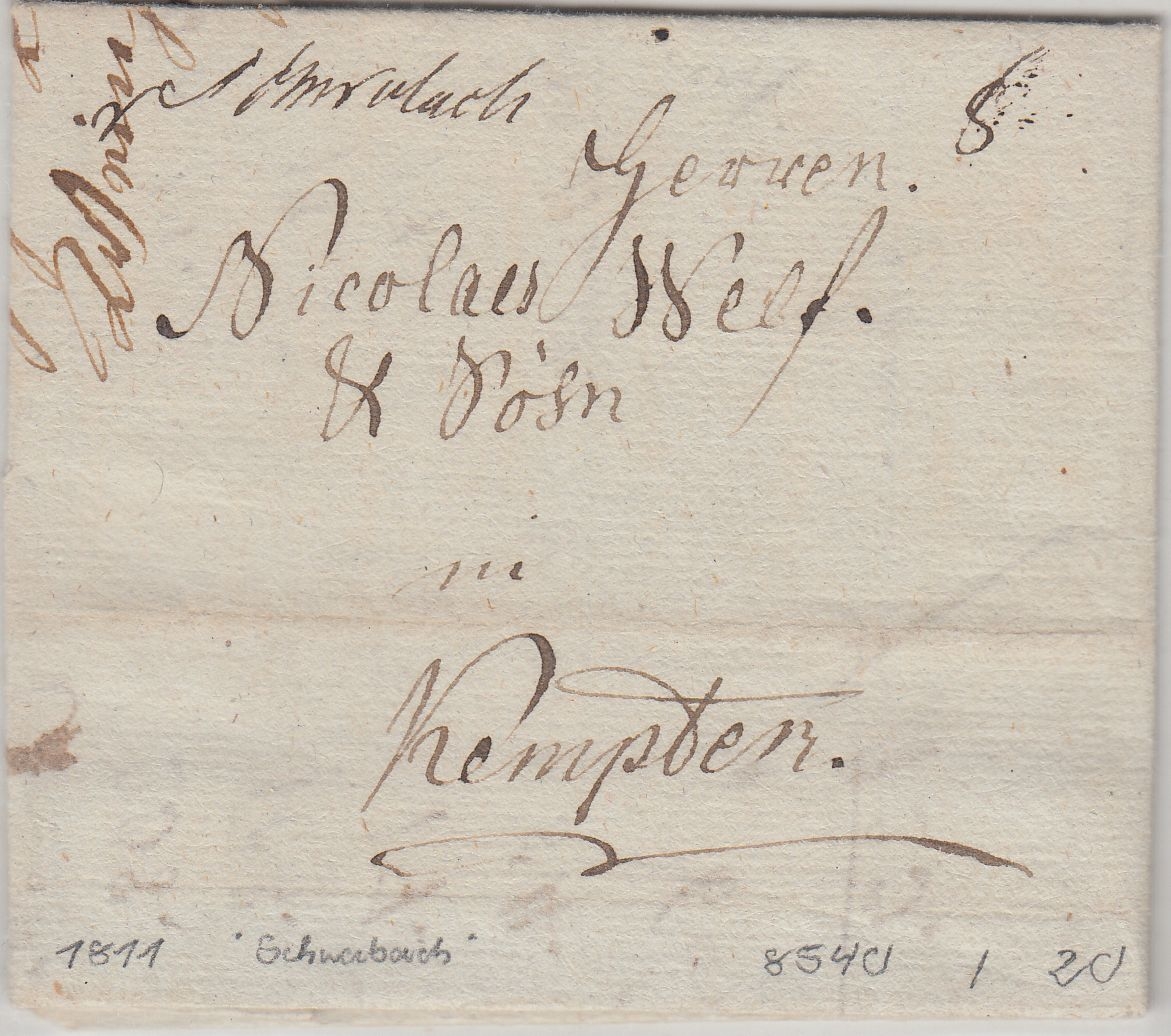 Schwabach
8
Herren.
Nicolaus
& Söhn
in
Kempten.
1811 "Schwabach" 8540 / 20